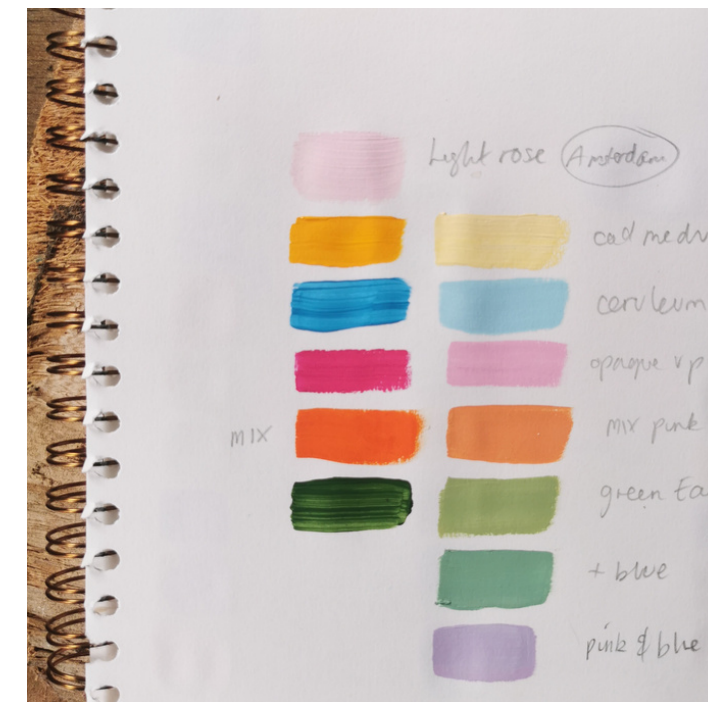 Light rose Amsterdam
cad med
ceruleum
opaque vp
mix mix pink
green Ea
+ blue
pink & blue